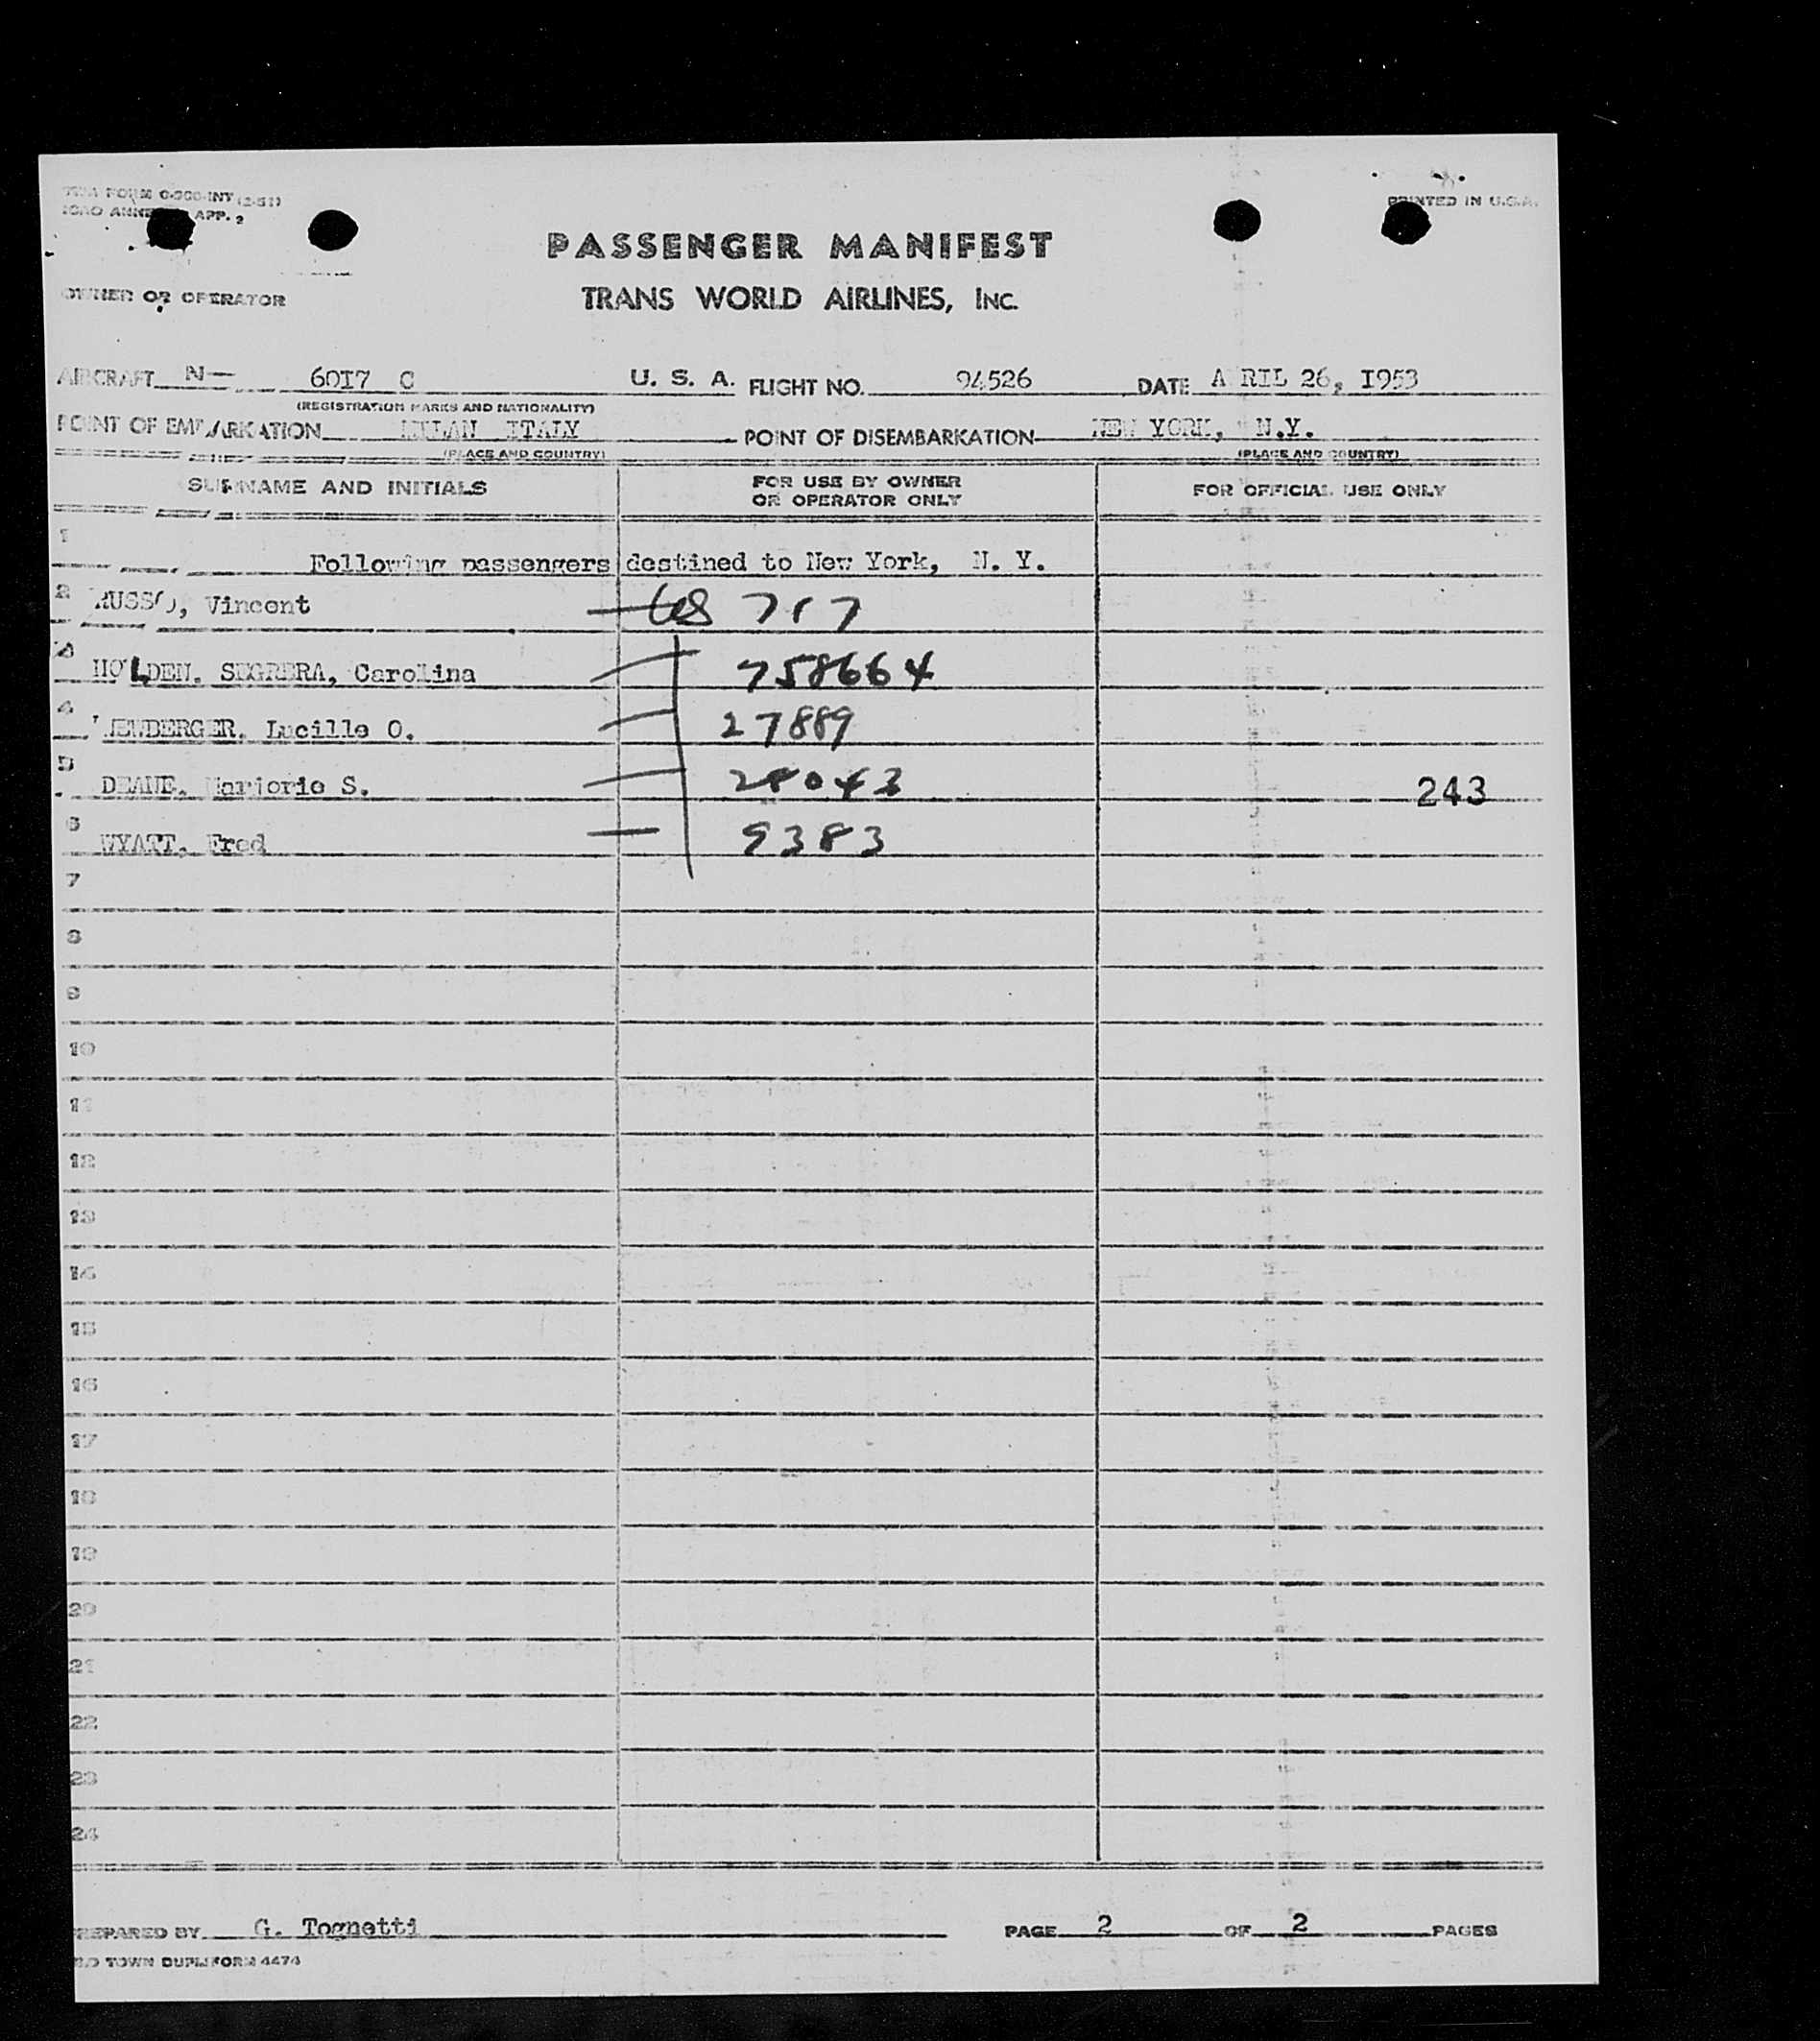 TWA FORM (2-51)
ICAO APP. 2
PRINTED IN U.S.A.
PASSENGER MANIFEST
OWNER OR OPERATOR
TRANS WORLD AIRLINES, INC.
AIRCRAFT N— 60I7 C U. S. A. FLIGHT NO. 94526 DATE A RIL 26, I953
(REGISTRATION MARKS AND NATIONALITY)
POINT OF EMBARKATION MILAN ITALY POINT OF DISEMBARKATION NEW YORK, N.Y.
(PLACE AND COUNTRY) (PLACE AND COUNTRY)
SURNAME AND INITIALS FOR USE BY OWNER OR OPERATOR ONLY FOR OFFICIAL USE ONLY
1 Following passengers destined to New York, N. Y.
2 RUSSO, Vincent 717
3 HOLDEN. SEGRERA, Carolina 758664
4 Lucille O. 27889
5 DEANE. Marjorie S. 243
6 WYATT, Fred 9383
7
8
9
10
11
12
13
14
15
16
17
18
19
20
21
22
23
24
PREPARED BY G. Tognetti PAGE 2 OF 2 PAGES
TOWN DUPLIFORM 4474